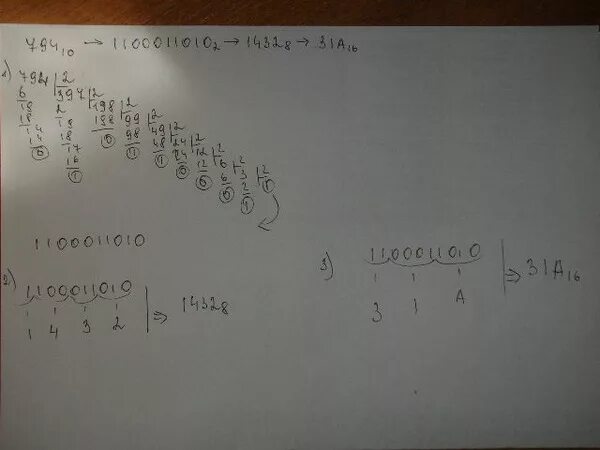 794₁₀ → 1100011010₂ → 1432₈ → 31A₁₆
1)
794 | 2
6 397 | 2
19 2 198 | 2
18 19 198 99 | 2
14 18 0 98 49 | 2
14 17 1 48 24 | 2
0 16 1 24 12 | 2
1 0 12 6 | 2
0 6 3 | 2
0 2 1
1
1100011010
2) 1100011010 ⇒ 1432₈
1 4 3 2
3) 1100011010 ⇒ 31A₁₆
3 1 A